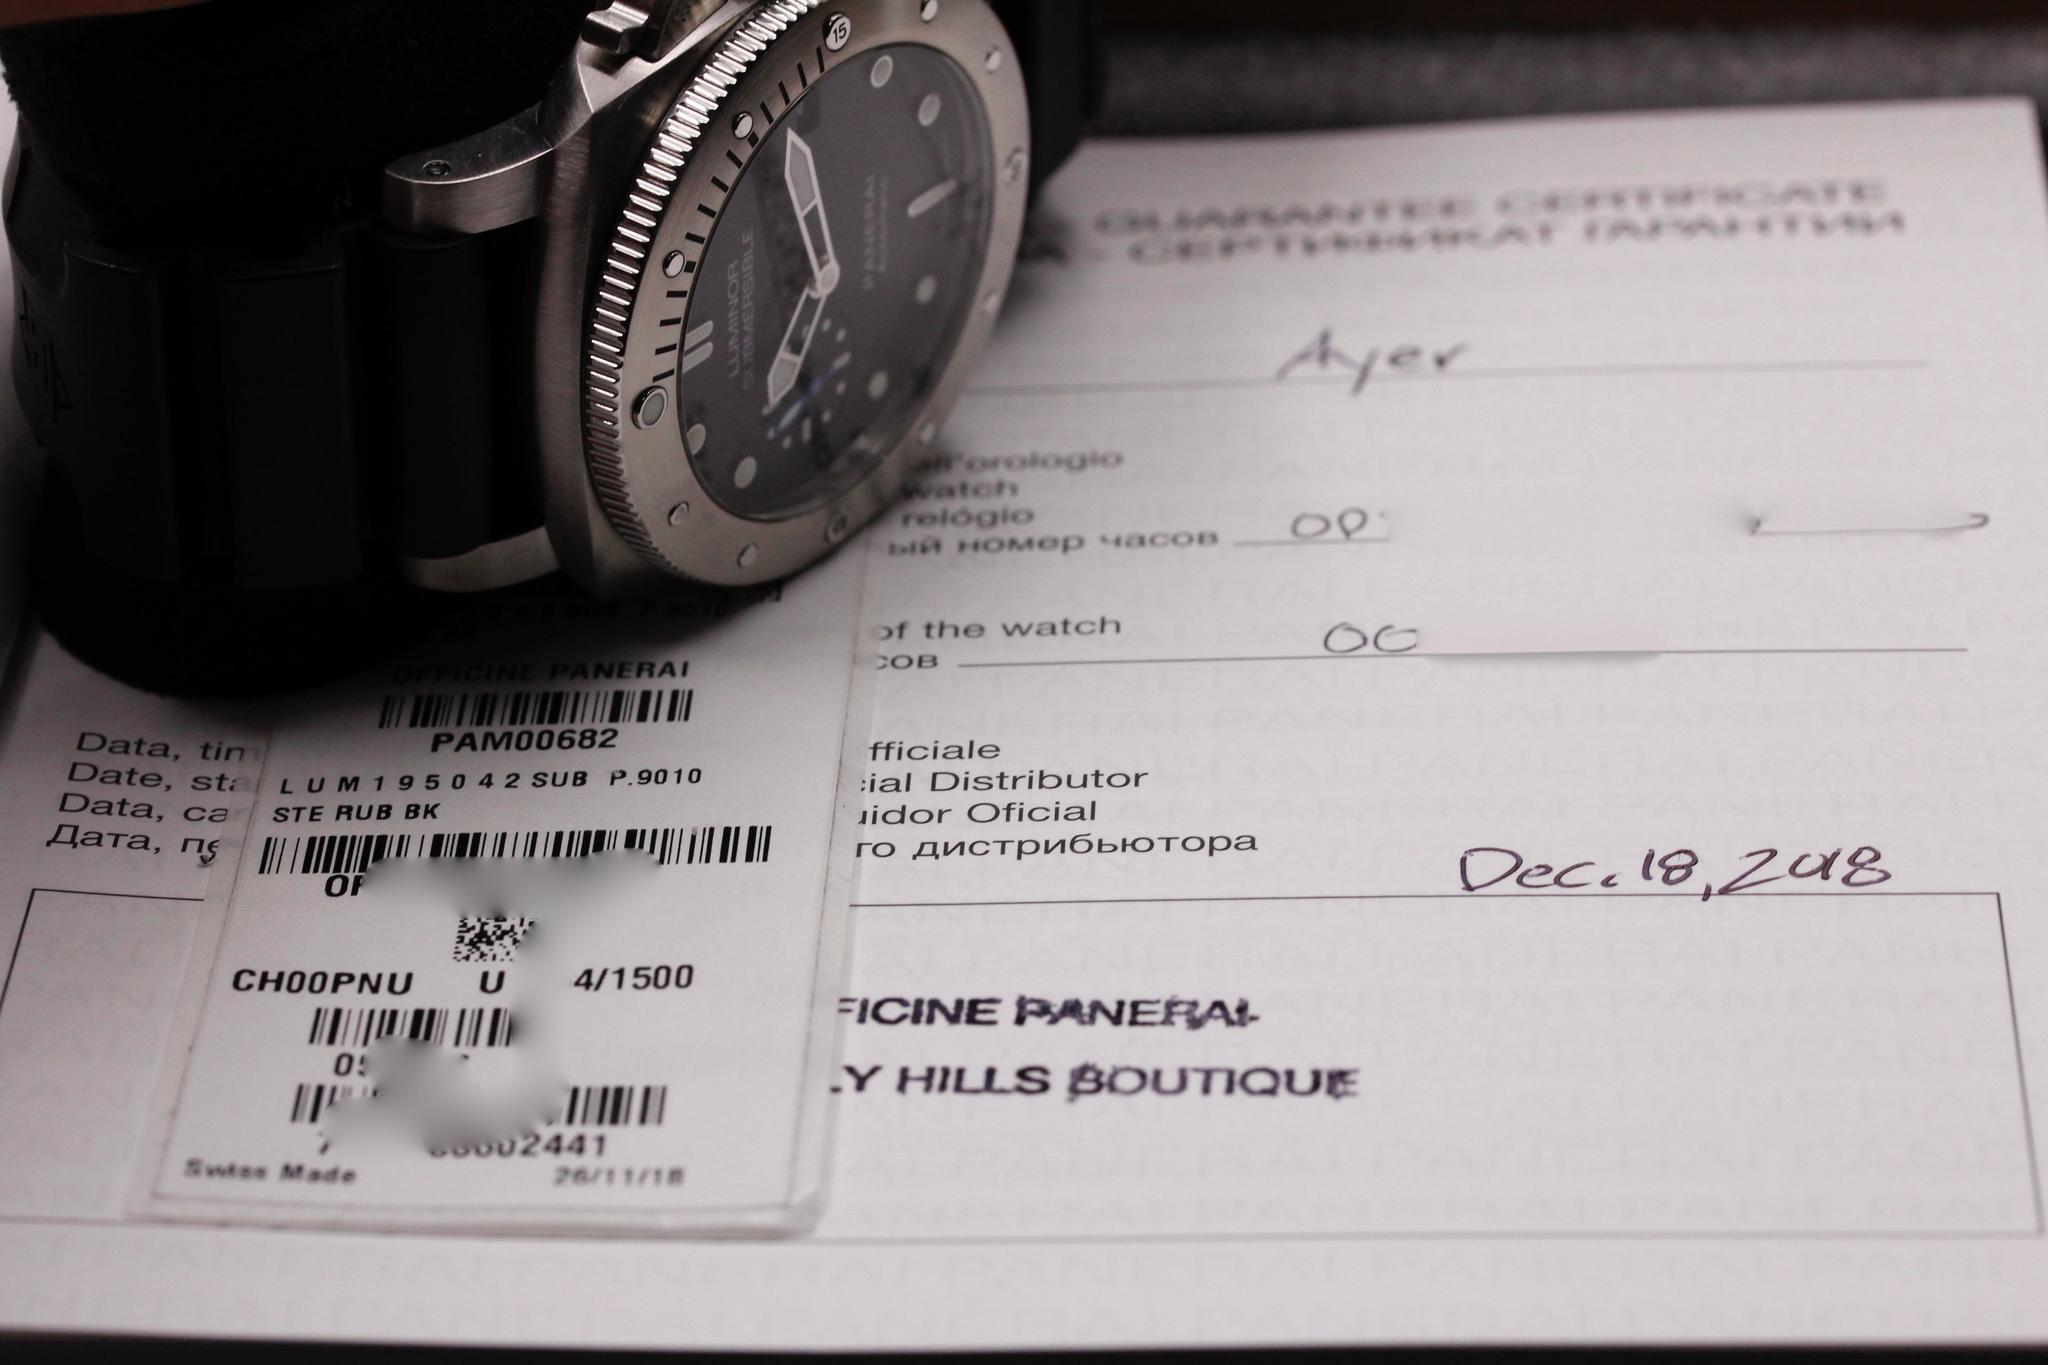 15
LUMINOR
SUBMERSIBLE
PANERAI
AUTOMATIC
GUARANTEE CERTIFICATE
- СЕРТИФИКАТ ГАРАНТИИ
Ayer
ll'orologio
watch
relógio
ый номер часов OP
of the watch OC
сов
P.9010
OFFICINE PANERAI
PAM00682
LUM195042SUB P.9010
STE RUB BK
OP
CH00PNU U 4/1500
05
2441
Swiss Made 26/11/18
Data, tim
Date, sta
Data, ca
Дата, пе
fficiale
ial Distributor
uidor Oficial
го дистрибьютора
Dec. 18, 2018
FICINE PANERAI
LY HILLS BOUTIQUE